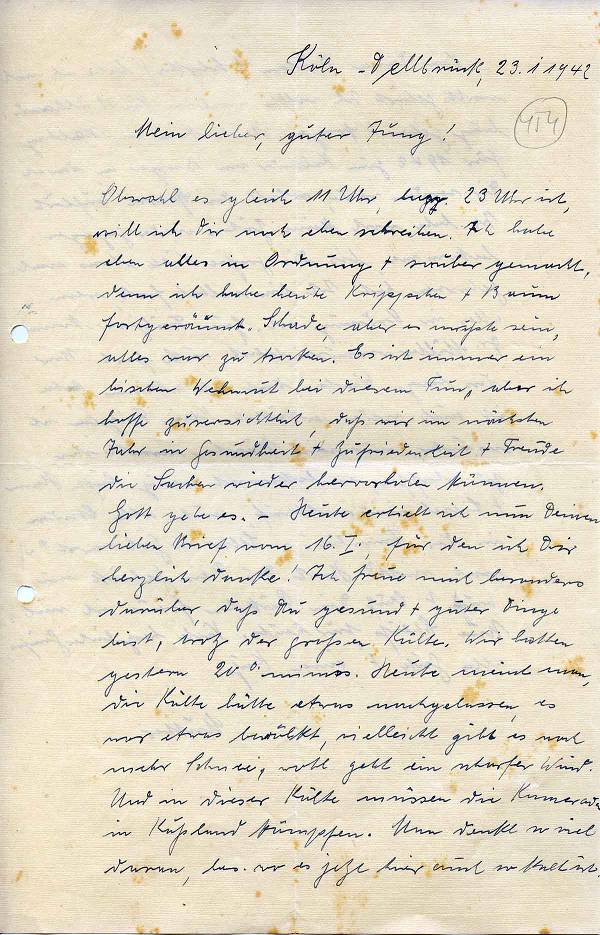 Köln-Dellbrück, 23.1 1942
Mein lieber, guter Jung!
Obwohl es gleich 11 Uhr, bezw. 23 Uhr ist,
will ich Dir noch eben schreiben. Ich habe
eben alles in Ordnung + sauber gemacht,
denn ich habe heute Krippchen + Baum
fortgeräumt. Schade, aber es mußte sein,
alles war zu trocken. Es ist immer ein
bischen Wehmut bei diesem Tun, aber ich
hoffe zuversichtlich, daß wir im nächsten
Jahr in Gesundheit + Zufriedenheit + Freude
die Sachen wieder hervorholen können.
Gott gebe es. – Heute erhielt ich nun Deinen
lieben Brief vom 16.I., für den ich Dir
herzlich danke! Ich freue mich besonders
darüber, daß Du gesund + guter Dinge
bist, trotz der großen Kälte. Wir hatten
gestern 20° minus. Heute meint man,
die Kälte hätte etwas nachgelassen, es
war etwas bewölkt, vielleicht gibt es noch
mehr Schnee, wohl geht ein scharfer Wind.
Und in dieser Kälte müssen die Kameraden
in Rußland kämpfen. Man denkt so viel
daran, bes. wo es jetzt hier auch so kalt ist.